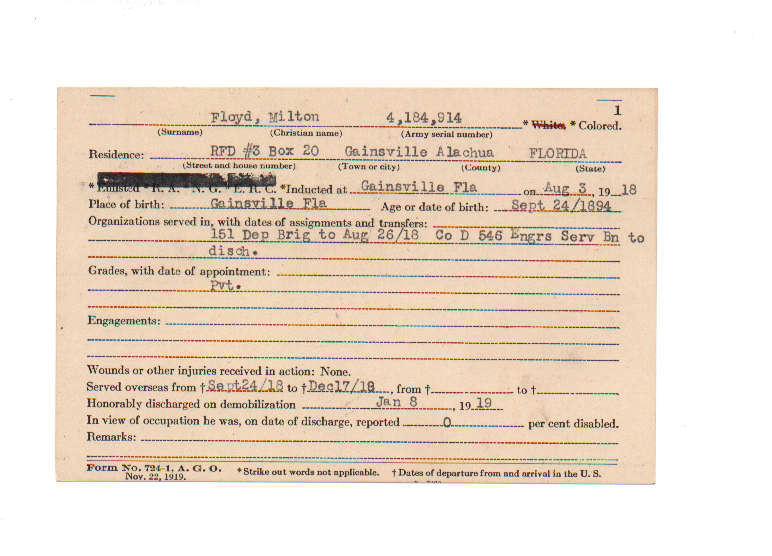 1
Floyd, Milton 4,184,914 * White, * Colored.
(Surname) (Christian name) (Army serial number)
Residence: RFD #3 Box 20 Gainsville Alachua FLORIDA
(Street and house number) (Town or city) (County) (State)
* Enlisted * R. A. * N. G. * E. R. C. *Inducted at Gainsville Fla on Aug 3, 1918
Place of birth: Gainsville Fla Age or date of birth: Sept 24/1894
Organizations served in, with dates of assignments and transfers:
151 Dep Brig to Aug 26/18 Co D 546 Engrs Serv Bn to
disch.
Grades, with date of appointment:
Pvt.
Engagements:
Wounds or other injuries received in action: None.
Served overseas from †Sept24/18 to †Dec17/18, from † to †
Honorably discharged on demobilization Jan 8, 19 19
In view of occupation he was, on date of discharge, reported 0 per cent disabled.
Remarks:
Form No. 724-1, A. G. O. *Strike out words not applicable. † Dates of departure from and arrival in the U. S.
Nov. 22, 1919.